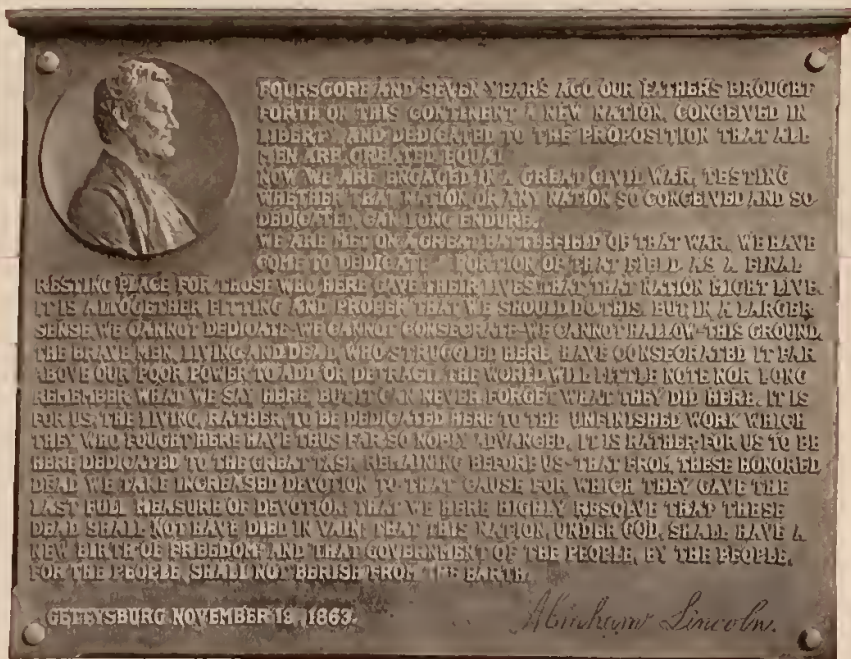 FOURSCORE AND SEVEN YEARS AGO OUR FATHERS BROUGHT
FORTH ON THIS CONTINENT A NEW NATION, CONCEIVED IN
LIBERTY, AND DEDICATED TO THE PROPOSITION THAT ALL
MEN ARE CREATED EQUAL
NOW WE ARE ENGAGED IN A GREAT CIVIL WAR, TESTING
WHETHER THAT NATION OR ANY NATION SO CONCEIVED AND SO
DEDICATED, CAN LONG ENDURE.
WE ARE MET ON A GREAT BATTLEFIELD OF THAT WAR. WE HAVE
COME TO DEDICATE A PORTION OF THAT FIELD, AS A FINAL
RESTING PLACE FOR THOSE WHO HERE GAVE THEIR LIVES THAT THAT NATION MIGHT LIVE.
IT IS ALTOGETHER FITTING AND PROPER THAT WE SHOULD DO THIS. BUT IN A LARGER
SENSE WE CANNOT DEDICATE-WE CANNOT CONSECRATE-WE CANNOT HALLOW-THIS GROUND.
THE BRAVE MEN, LIVING AND DEAD, WHO STRUGGLED HERE, HAVE CONSECRATED IT FAR
ABOVE OUR POOR POWER TO ADD OR DETRACT. THE WORLD WILL LITTLE NOTE NOR LONG
REMEMBER WHAT WE SAY HERE, BUT IT CAN NEVER FORGET WHAT THEY DID HERE. IT IS
FOR US, THE LIVING, RATHER, TO BE DEDICATED HERE TO THE UNFINISHED WORK WHICH
THEY WHO FOUGHT HERE HAVE THUS FAR SO NOBLY ADVANCED. IT IS RATHER FOR US TO BE
HERE DEDICATED TO THE GREAT TASK REMAINING BEFORE US-THAT FROM THESE HONORED
DEAD WE TAKE INCREASED DEVOTION TO THAT CAUSE FOR WHICH THEY GAVE THE
LAST FULL MEASURE OF DEVOTION THAT WE HERE HIGHLY RESOLVE THAT THESE
DEAD SHALL NOT HAVE DIED IN VAIN THAT THIS NATION, UNDER GOD, SHALL HAVE A
NEW BIRTH OF FREEDOM AND THAT GOVERNMENT OF THE PEOPLE, BY THE PEOPLE,
FOR THE PEOPLE, SHALL NOT PERISH FROM THE EARTH.
GETTYSBURG NOVEMBER 19, 1863.
Abraham Lincoln.